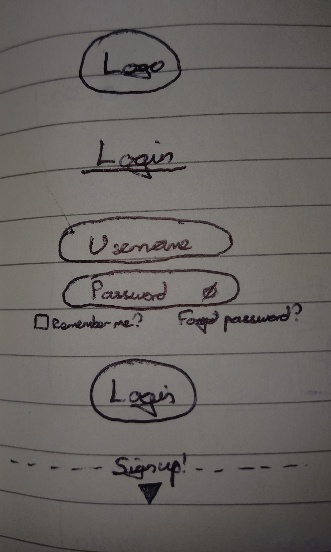 Logo
Login
Username
Password
Remember me? Forgot password?
Login
Sign up!